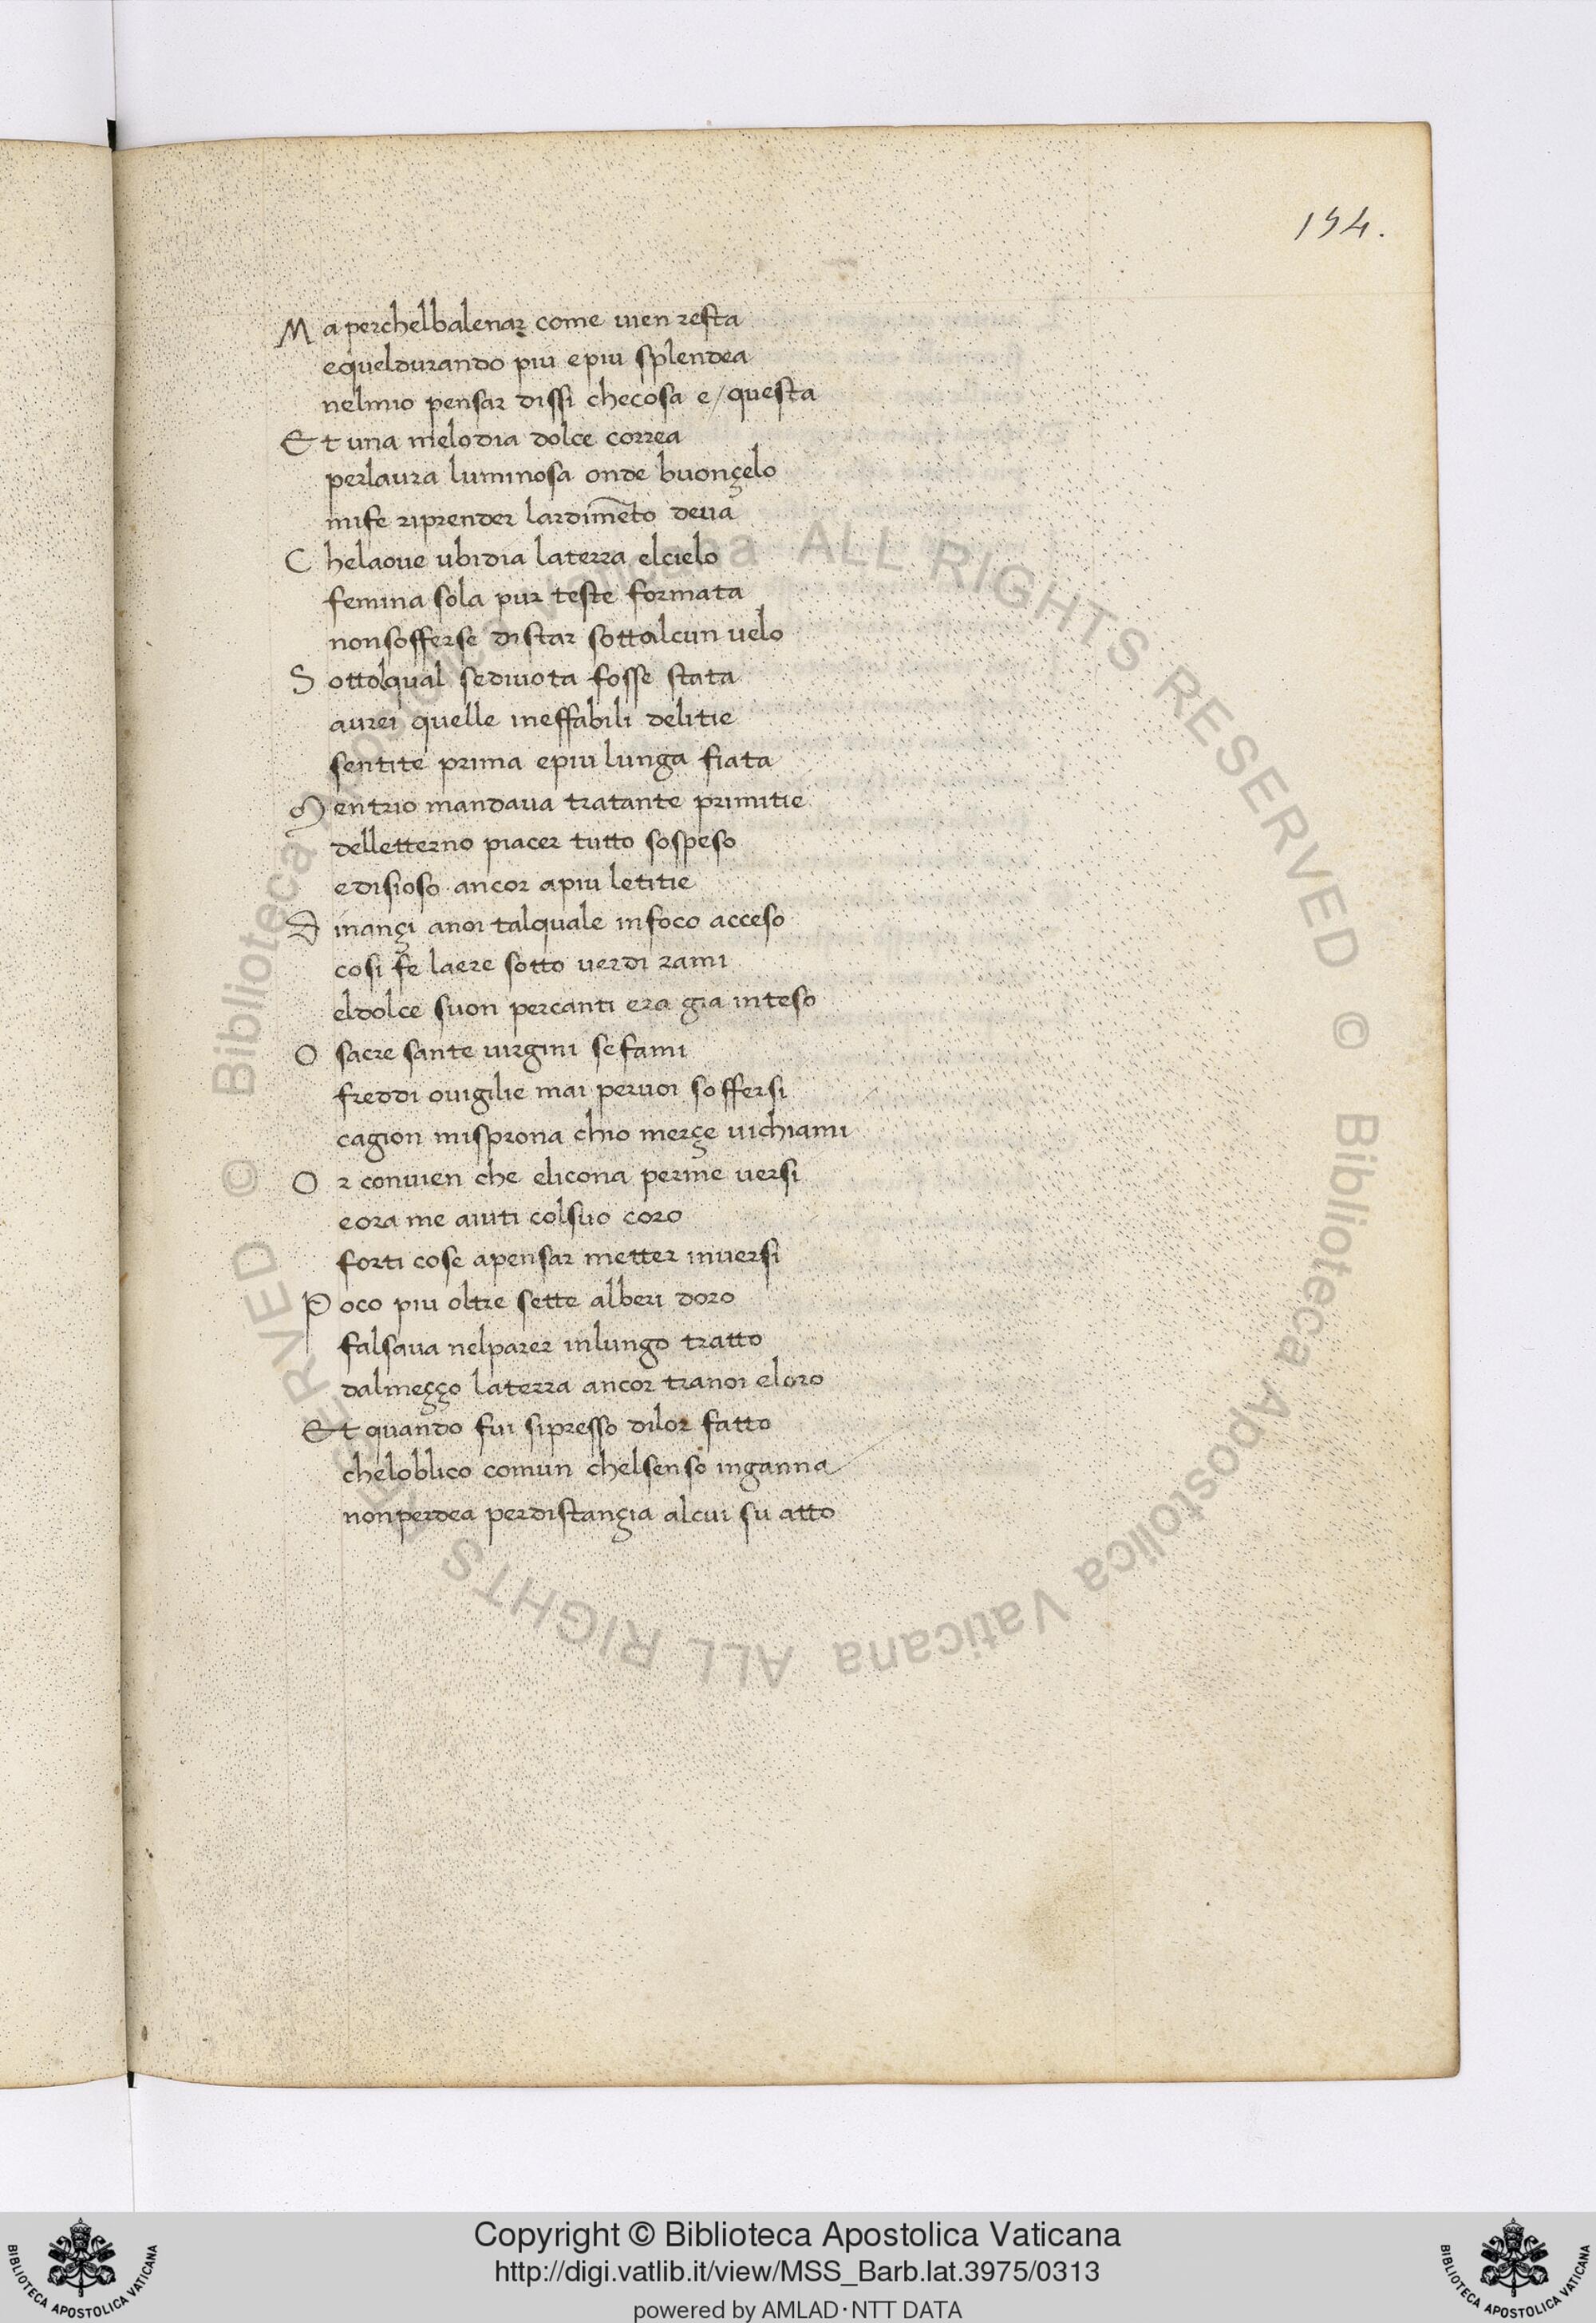 154.
M a perchelbalenar come uien resta
equeldurando piu epiu splendea
nelmio pensar dissi checosa e/questa
Et una melodia dolce correa
perlaura luminosa onde buonçelo
mife riprender lardim̅eto deua
C helaoue ubidia laterra elcielo
femina sola pur teste formata
nonsofferse distar sottalcun uelo
S ottolqual sediuota fosse stata
aurei quelle ineffabili delitie
sentite prima epiu lunga fiata
M entrio mandaua tratante primitie
delletterno piacer tutto sospeso
edisioso ancor apiu letitie
D inançi anoi talquale infoco acceso
cosi fe laere sotto uerdi rami
eldolce suon percanti era gia inteso
O sacre sante uirgini sefami
freddi ouigilie mai peruoi soffersi
cagion misprona chio merçe uichiami
O r conuien che elicona perme uersi
eora me aiuti colsuo coro
forti cose apensar metter inuersi
P oco piu oltre sette alberi doro
falsaua nelparer inlungo tratto
dalmeçço laterra ancor tranoi eloro
Et quando fui sipresso dilor fatto
cheloblico comun chelsenso inganna
nonperdea perdistançia alcui su atto
© Biblioteca Apostolica Vaticana ALL RIGHTS RESERVED © Biblioteca Apostolica Vaticana ALL RIGHTS RESERVED
Copyright © Biblioteca Apostolica Vaticana
http://digi.vatlib.it/view/MSS_Barb.lat.3975/0313
powered by AMLAD·NTT DATA
BIBLIOTECA APOSTOLICA VATICANA
BIBLIOTECA APOSTOLICA VATICANA